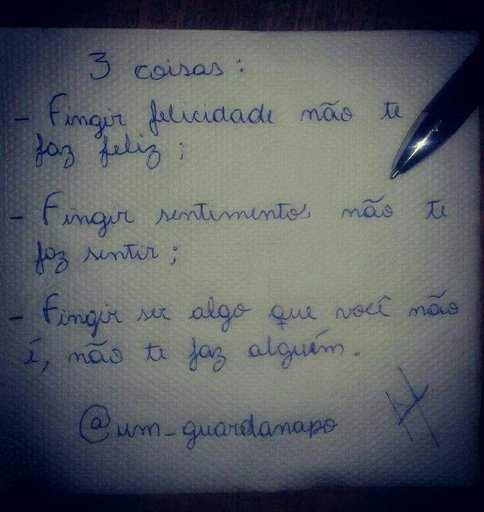 3 coisas:
- Fingir felicidade não te
faz feliz;
- Fingir sentimentos não te
faz sentir;
- Fingir ser algo que você não
é, não te faz alguém.
@um_guardanapo